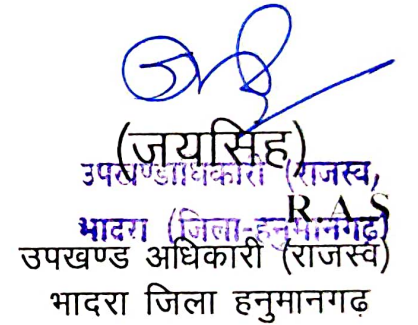 (जयसिंह)
उपखण्डाधिकारी (राजस्व)
R.A.S
भादरा (जिला-हनुमानगढ़)
उपखण्ड अधिकारी (राजस्व)
भादरा जिला हनुमानगढ़